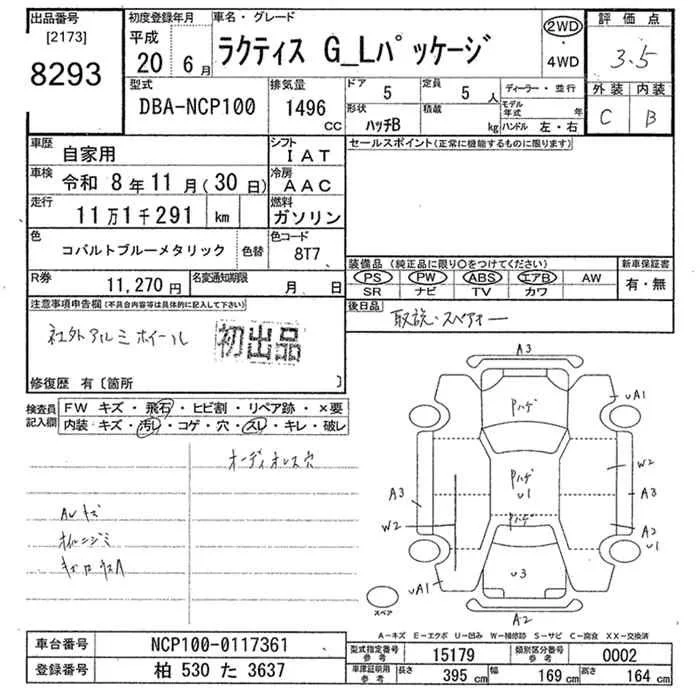 出品番号
[2173]
8293
初度登録年月
平成
20 6月
車名・グレード
ラクティス G_Lパッケージ
2WD
・
4WD
評価点
3.5
外装 内装
C B
型式
DBA-NCP100
排気量
1496
CC
ドア
5
定員
5 人
形状
ハッチB
積載
kg
ディーラー・並行
モデル年式 年
ハンドル 左・右
車歴
自家用
シフト
IAT
車検
令和 8年 11月(30日)
冷房
AAC
走行
11万1千291 km
燃料
ガソリン
色
コバルトブルーメタリック
色替
色コード
8T7
R券
11,270円
名変通知期限
月 日
セールスポイント(正常に機能するものに限ります)
装備品 (純正品に限り○をつけてください)
PS PW ABS エアB AW
SR ナビ TV カワ
新車保証書
有・無
後日品
取説・スペアキー
注意事項申告欄(不具合内容等は具体的に記入して下さい)
社外アルミホイール
初出品
修復歴 有〔箇所 〕
検査員記入欄
FW キズ・飛石・ヒビ割・リペア跡・×要
内装 キズ・汚レ・コゲ・穴・スレ・キレ・破レ
オーディオレス穴
A3
Pハゲ
uA1
W2
A3
A2
u1
Pハゲ
u1
Pハゲ
A3
W2
uA1
u3
A2
スペア
A-キズ E-エクボ U-凹み W-補修跡 S-サビ C-腐食 XX-交換済
車台番号
NCP100-0117361
登録番号
柏 530 た 3637
型式指定番号
参考
15179
類別区分番号
参考
0002
車庫証明用
参考
長さ
395 cm
幅
169 cm
高さ
164 cm